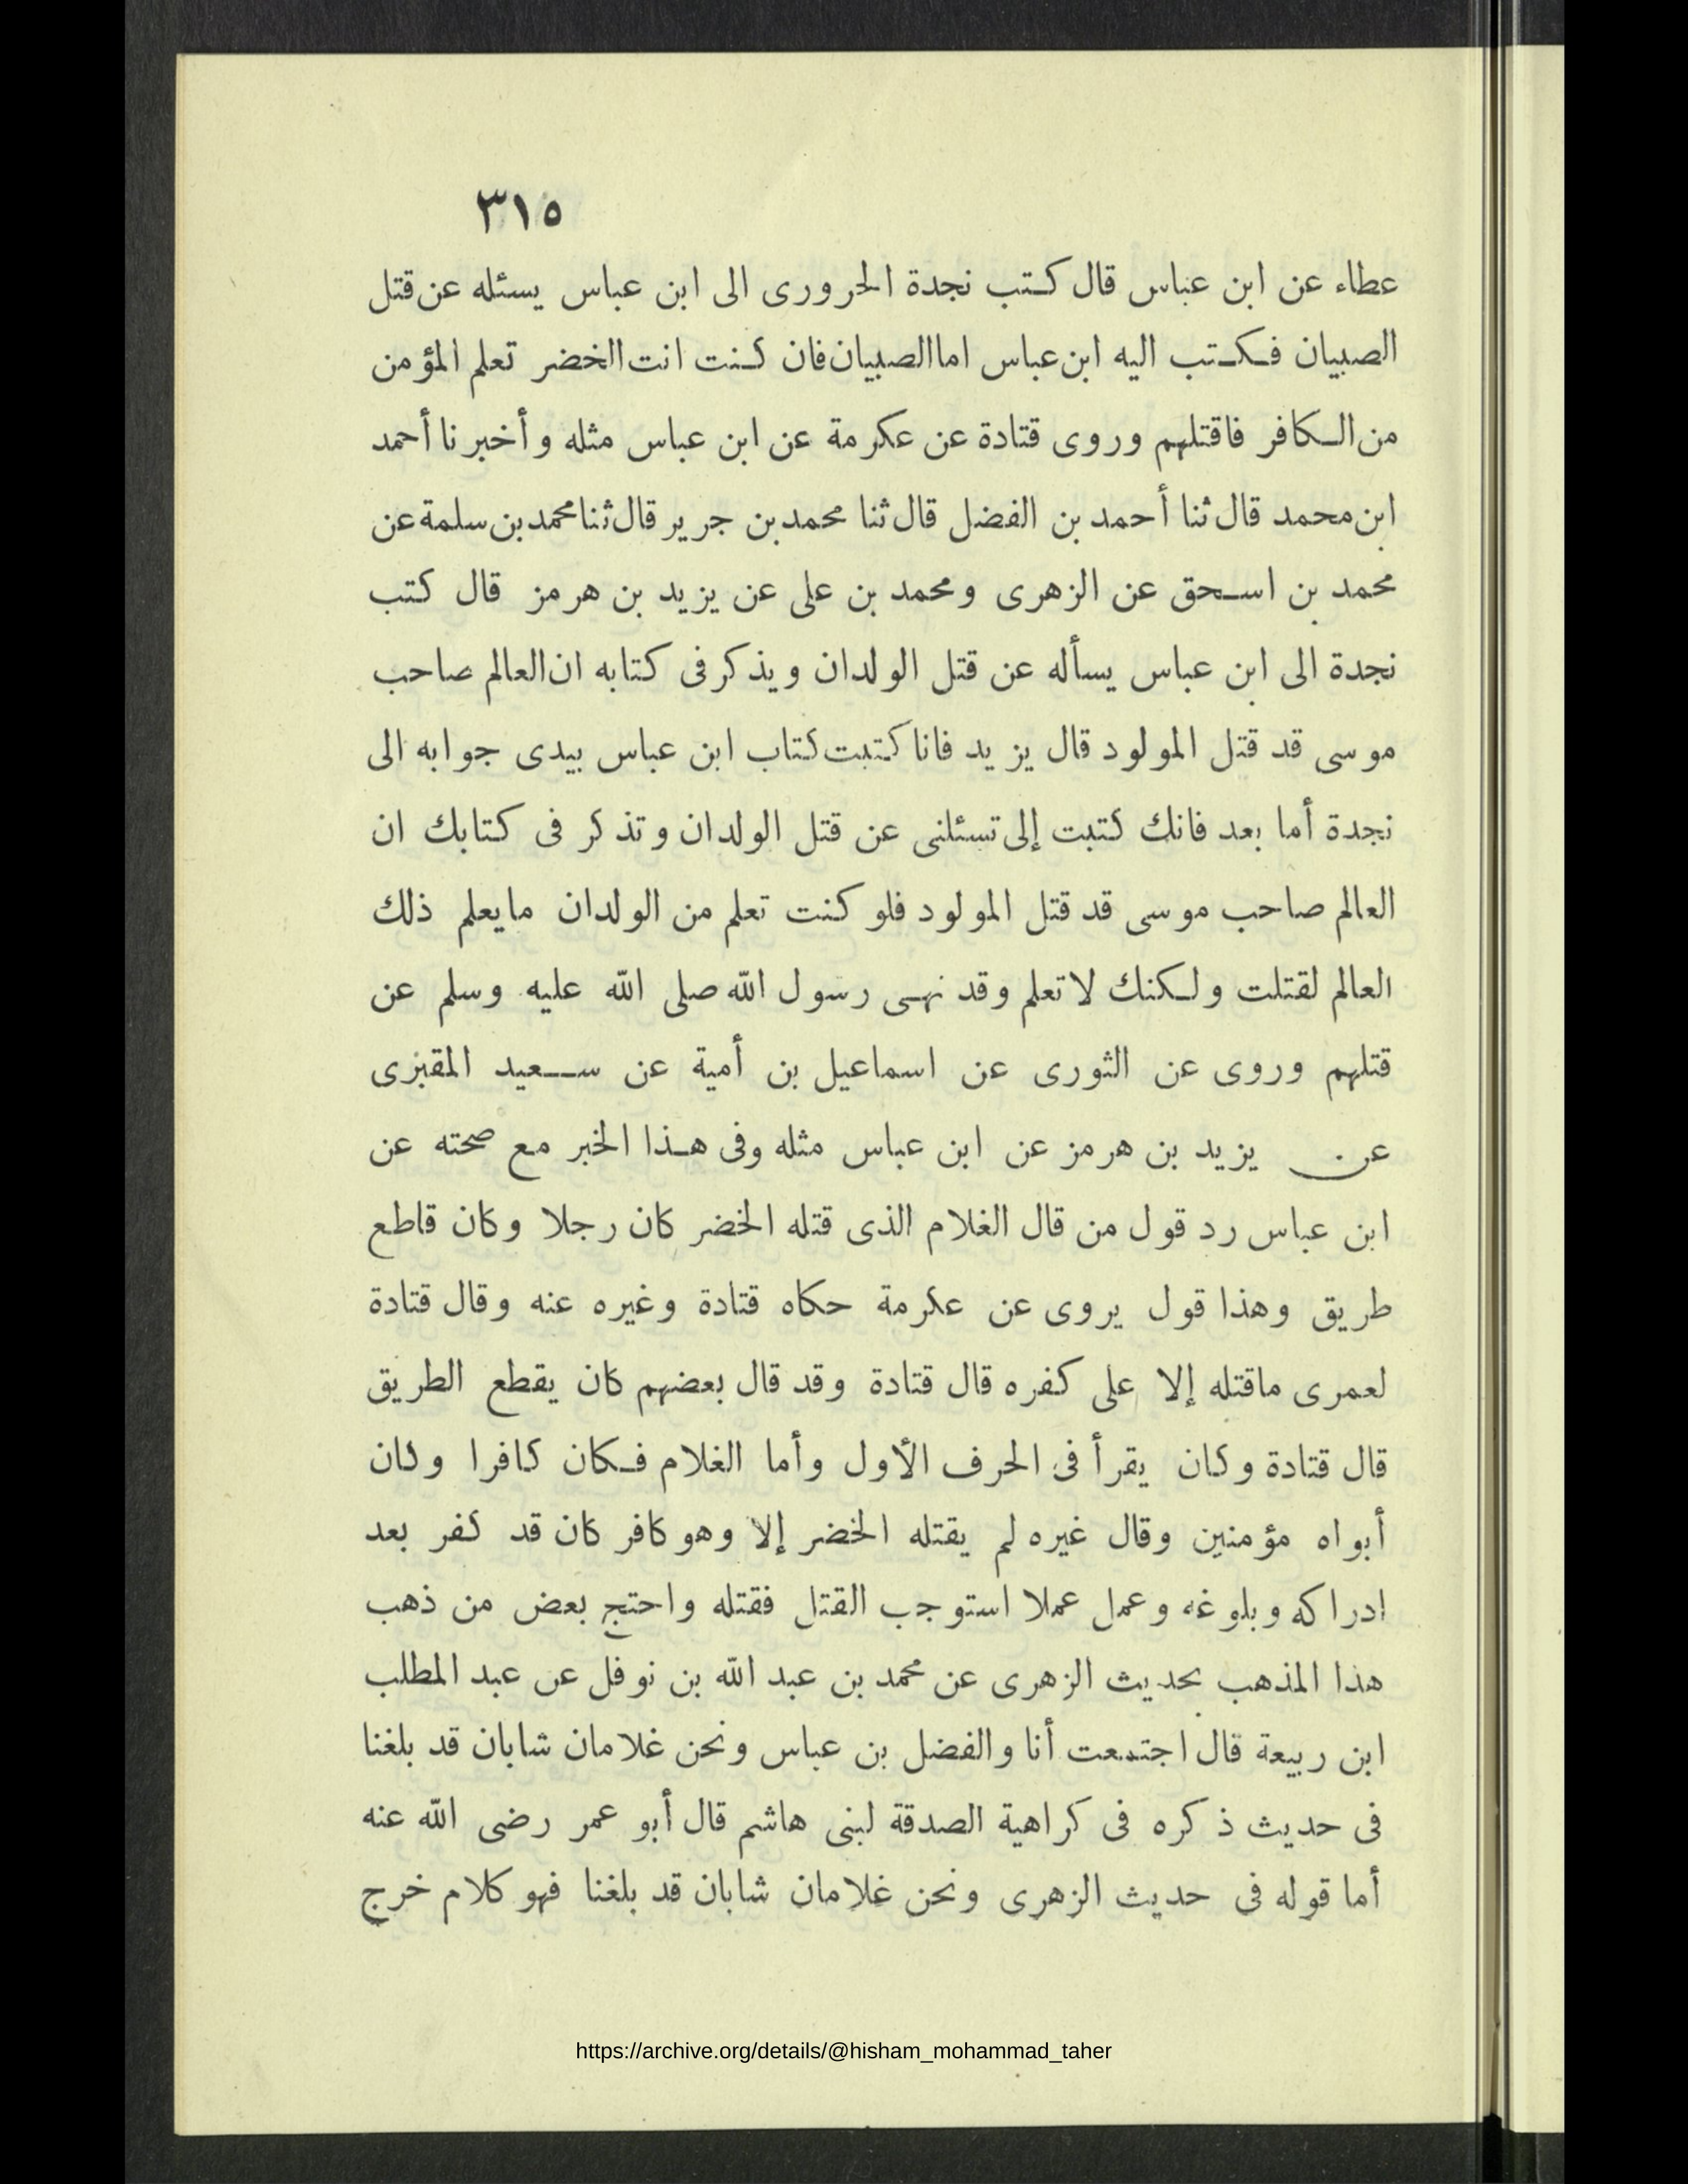 ٣١٥
عطاء عن ابن عباس قال كتب نجدة الحرورى الى ابن عباس يسئله عن قتل
الصبيان فكتب اليه ابن عباس اما الصبيان فان كنت انت الخضر تعلم المؤمن
من الكافر فاقتلهم وروى قتادة عن عكرمة عن ابن عباس مثله وأخبرنا أحمد
ابن محمد قال ثنا أحمد بن الفضل قال ثنا محمد بن جرير قال ثنا محمد بن سلمة عن
محمد بن اسحق عن الزهرى ومحمد بن على عن يزيد بن هرمز قال كتب
نجدة الى ابن عباس يسأله عن قتل الولدان ويذكر فى كتابه ان العالم صاحب
موسى قد قتل المولود قال يزيد فانا كتبت كتاب ابن عباس بيدى جوابه الى
نجدة أما بعد فانك كتبت إلى تسئلنى عن قتل الولدان وتذكر فى كتابك ان
العالم صاحب موسى قد قتل المولود فلو كنت تعلم من الولدان مايعلم ذلك
العالم لقتلت ولكنك لا تعلم وقد نهى رسول الله صلى الله عليه وسلم عن
قتلهم وروى عن الثورى عن اسماعيل بن أمية عن سعيد المقبرى
عن يزيد بن هرمز عن ابن عباس مثله وفى هذا الخبر مع صحته عن
ابن عباس رد قول من قال الغلام الذى قتله الخضر كان رجلا وكان قاطع
طريق وهذا قول يروى عن عكرمة حكاه قتادة وغيره عنه وقال قتادة
لعمرى ماقتله إلا على كفره قال قتادة وقد قال بعضهم كان يقطع الطريق
قال قتادة وكان يقرأ فى الحرف الأول وأما الغلام فكان كافرا وكان
أبواه مؤمنين وقال غيره لم يقتله الخضر إلا وهو كافر كان قد كفر بعد
ادراكه وبلوغه وعمل عملا استوجب القتل فقتله واحتج بعض من ذهب
هذا المذهب بحديث الزهرى عن محمد بن عبد الله بن نوفل عن عبد المطلب
ابن ربيعة قال اجتمعت أنا والفضل بن عباس ونحن غلامان شابان قد بلغنا
فى حديث ذكره فى كراهية الصدقة لبنى هاشم قال أبو عمر رضى الله عنه
أما قوله فى حديث الزهرى ونحن غلامان شابان قد بلغنا فهو كلام خرج
https://archive.org/details/@hisham_mohammad_taher